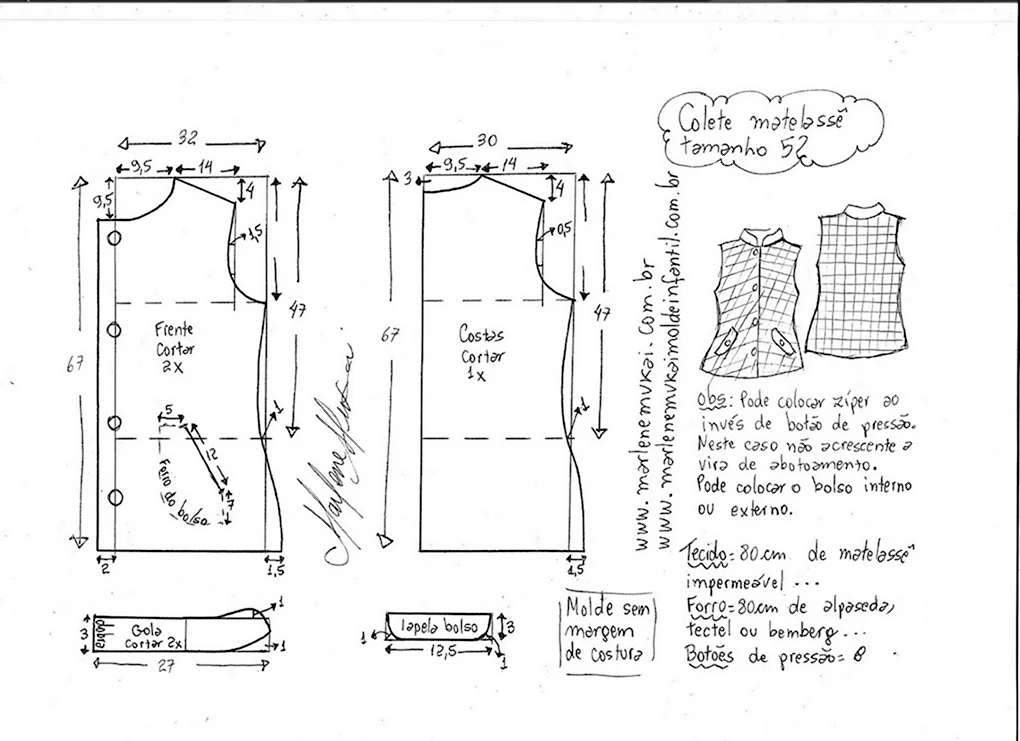 Colete matelassê
tamanho 52
32
9,5
14
9,5
4
1,5
67
47
Frente
Cortar
2x
5
12
7
Forro do bolso
1
2
1,5
30
9,5
14
3
4
0,5
67
47
Costas
Cortar
1x
1
1,5
Marlene Mukai
www.marlenemukai.com.br
www.marlenemukaimoldeinfantil.com.br
Obs: Pode colocar zíper ao
invés de botão de pressão.
Neste caso não acrescente a
vira de abotoamento.
Pode colocar o bolso interno
ou externo.
Tecido=80cm de matelassê
impermeável ...
Forro=80cm de alpaseda,
tectel ou bemberg...
Botões de pressão= 8
3
dobra
Gola
Cortar 2x
1
1
27
lapela bolso
1
3
12,5
1
Molde sem
margem
de costura